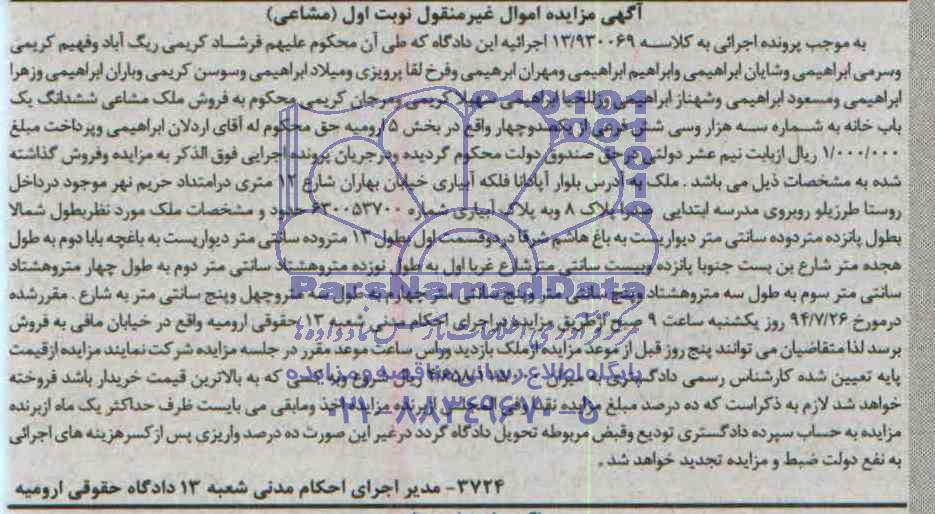 آگهی مزایده اموال غیرمنقول نوبت اول (مشاعی)
به موجب پرونده اجرائی به کلاسه ۱۳/۹۳۰۰۶۹ اجرائیه این دادگاه که طی آن محکوم علیهم فرشاد کریمی ریگ آباد وفهیم کریمی
وسرمی ابراهیمی وشایان ابراهیمی وابراهیم ابراهیمی ومهران ابرهیمی وفرخ لقا پرویزی ومیلاد ابراهیمی وسوسن کریمی وباران ابراهیمی وزهرا
ابراهیمی ومسعود ابراهیمی وشهناز ابراهیمی وزللخیا ابراهیمی سهیلا کریمی ومرجان کریمی محکوم به فروش ملک مشاعی ششدانگ یک
باب خانه به شماره سه هزار وسی شش فرعی از یکصدوچهار واقع در بخش ۵ ارومیه حق محکوم له آقای اردلان ابراهیمی وپرداخت مبلغ
۱/۰۰۰/۰۰۰ ریال ازبابت نیم عشر دولتی درحق صندوق دولت محکوم گردیده ودرجریان پرونده اجرایی فوق الذکر به مزایده وفروش گذاشته
شده به مشخصات ذیل می باشد . ملک به آدرس بلوار آپادانا فلکه آبیاری خیابان بهاران شارع ۱۲ متری درامتداد حریم نهر موجود درداخل
روستا طرزیلو روبروی مدرسه ابتدایی صدرا پلاک ۸ وبه پلاک آبیاری شماره ۶۳۰۰۵۳۷۰۰ حدود و مشخصات ملک مورد نظربطول شمالا
بطول پانزده متردوده سانتی متر دیواریست به باغ هاشم شرقا دردوقسمت اول بطول ۱۳ متروده سانتی متر دیواریست به باغچه بابا دوم به طول
هجده متر شارع بن بست جنوبا پانزده وبیست سانتی مترشارع غربا اول به طول نوزده متروهشتاد سانتی متر دوم به طول چهار متروهشتاد
سانتی متر سوم به طول سه متروهشتاد وپنج سانتی متر وپنج سانتی متر چهارم به طول سه متروچهل وپنج سانتی متر به شارع . مقررشده
درمورخ ۹۴/۷/۲۶ روز یکشنبه ساعت ۹ صبح ازطریق مزایده در اجرای احکام مدنی شعبه ۱۳ حقوقی ارومیه واقع در خیابان مافی به فروش
برسد لذا متقاضیان می توانند پنج روز قبل از موعد مزایده ازملک بازدید وراس ساعت موعد مقرر در جلسه مزایده شرکت نمایند مزایده ازقیمت
پایه تعیین شده کارشناس رسمی دادگستری به میزان ریال شروع وبه کسی که به بالاترین قیمت خریدار باشد فروخته
خواهد شد لازم به ذکراست که ده درصد مبلغ مزایده نقدا فی المجلس ازبرنده مزایده اخذ ومابقی می بایست ظرف حداکثر یک ماه ازبرنده
مزایده به حساب سپرده دادگستری تودیع وقبض مربوطه تحویل دادگاه گردد درغیر این صورت ده درصد واریزی پس از کسرهزینه های اجرائی
به نفع دولت ضبط و مزایده تجدید خواهد شد .
۳۷۲۴- مدیر اجرای احکام مدنی شعبه ۱۳ دادگاه حقوقی ارومیه
ParsNamadData
پایگاه اطلاع رسانی مناقصه و مزایده
۰۲۱-۸۸۳۴۹۶۷۰-۵